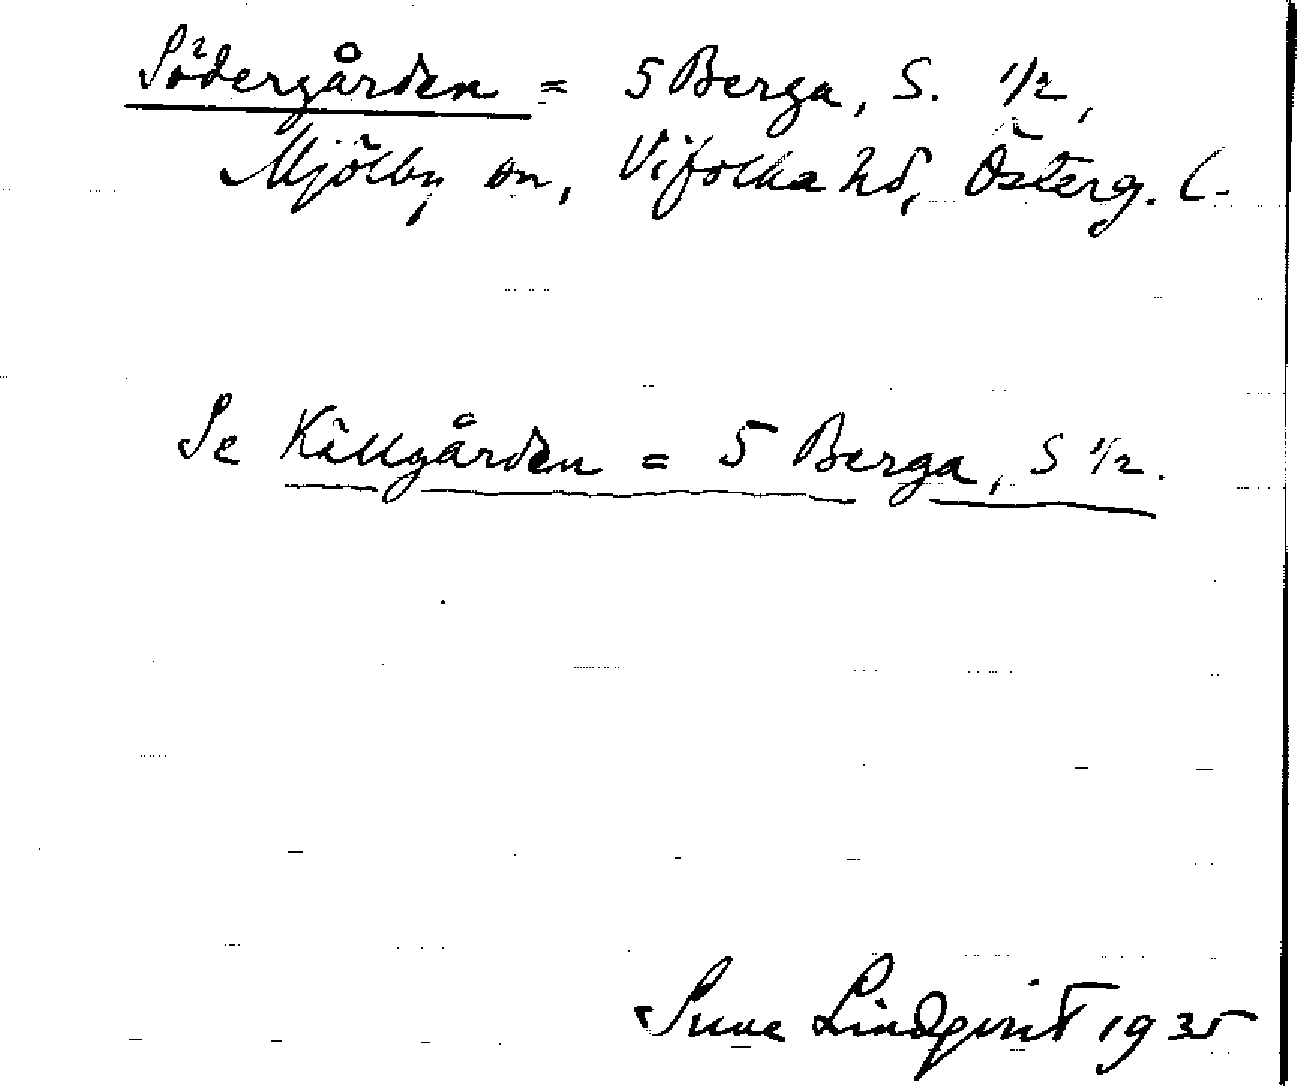 Södergården = 5 Berga, S. 1/2,
Mjölby sn, Vifolka hd, Österg. l.
Se Källgården = 5 Berga, S 1/2.
Sune Lindqvist 1935